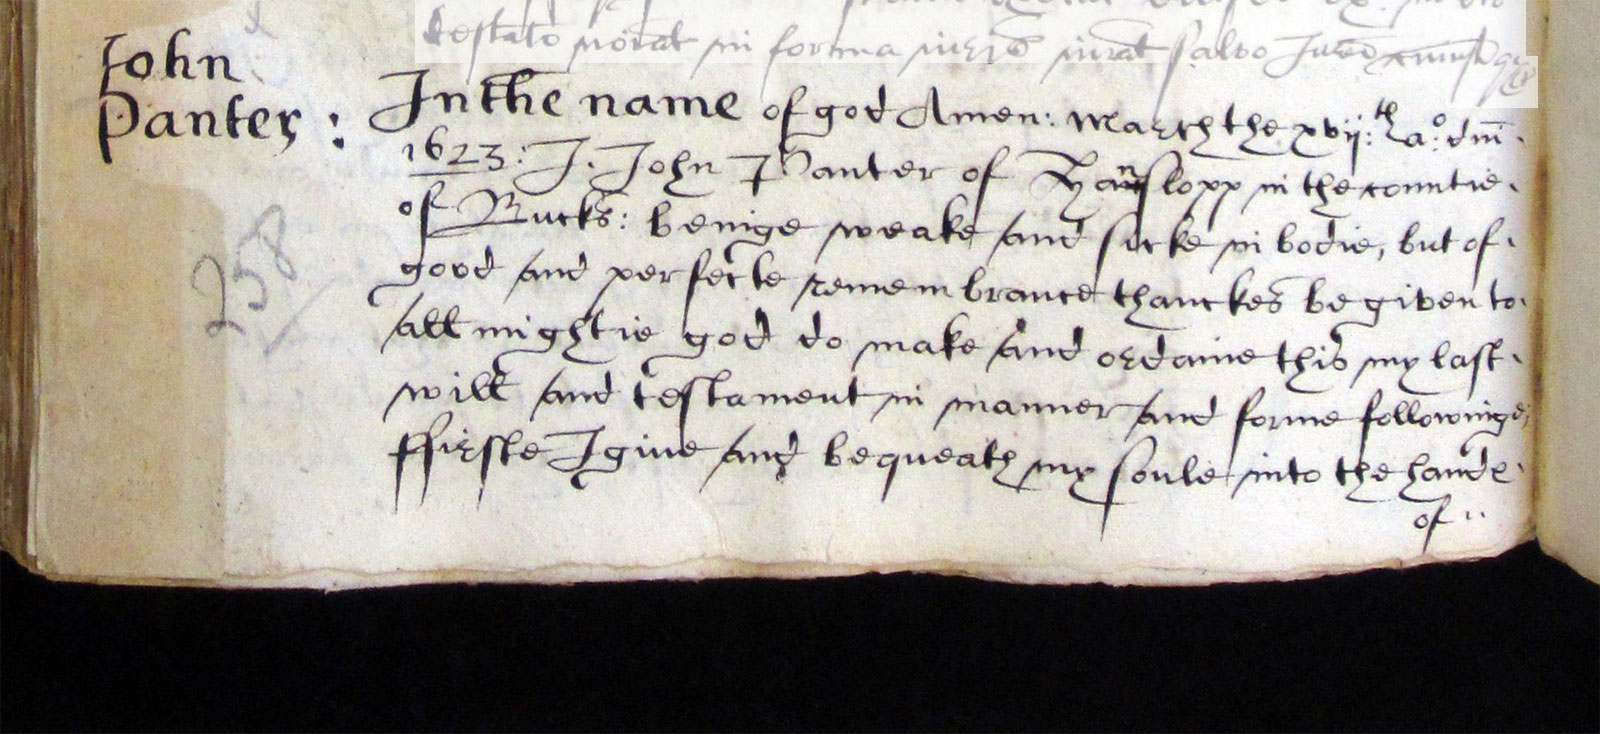 testato nōīat in forma iuris iurat salvo Jure
John
Panter:
In the name of god Amen: March the xvij:th a:o dm̄.
1623: I. John Panter of Hanslopp in the countie.
of Bucks: beinge weake and sicke in bodie, but of.
good and perfecte remembrance thanckes be given to.
all mightie god do make and ordaine this my last.
will and testament in manner and forme followinge;
ffirste I give and bequeath my soule into the hande.
of
258